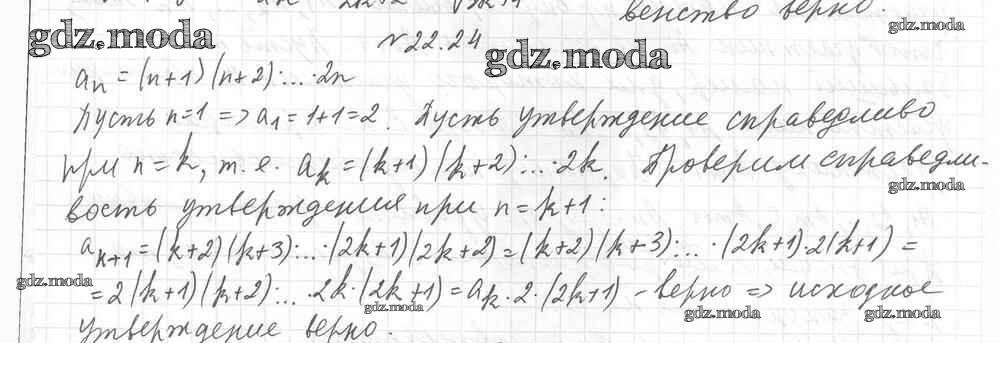 венство верно.
gdz.moda
gdz.moda
№22.24
gdz.moda
aₙ = (n+1)(n+2)·...·2n
Пусть n=1 => a₁=1+1=2. Пусть утверждение справедливо
при n=k, т.е. aₖ=(k+1)(k+2)·...·2k. Проверим справедли-
gdz.moda
вость утверждения при n=k+1:
aₖ₊₁=(k+2)(k+3)·...·(2k+1)(2k+2)=(k+2)(k+3)·...·(2k+1)·2(k+1)=
gdz.moda
=2(k+1)(k+2)·...·2k·(2k+1)=aₖ·2·(2k+1) - верно => исходное
gdz.moda
gdz.moda
gdz.moda
утверждение верно.